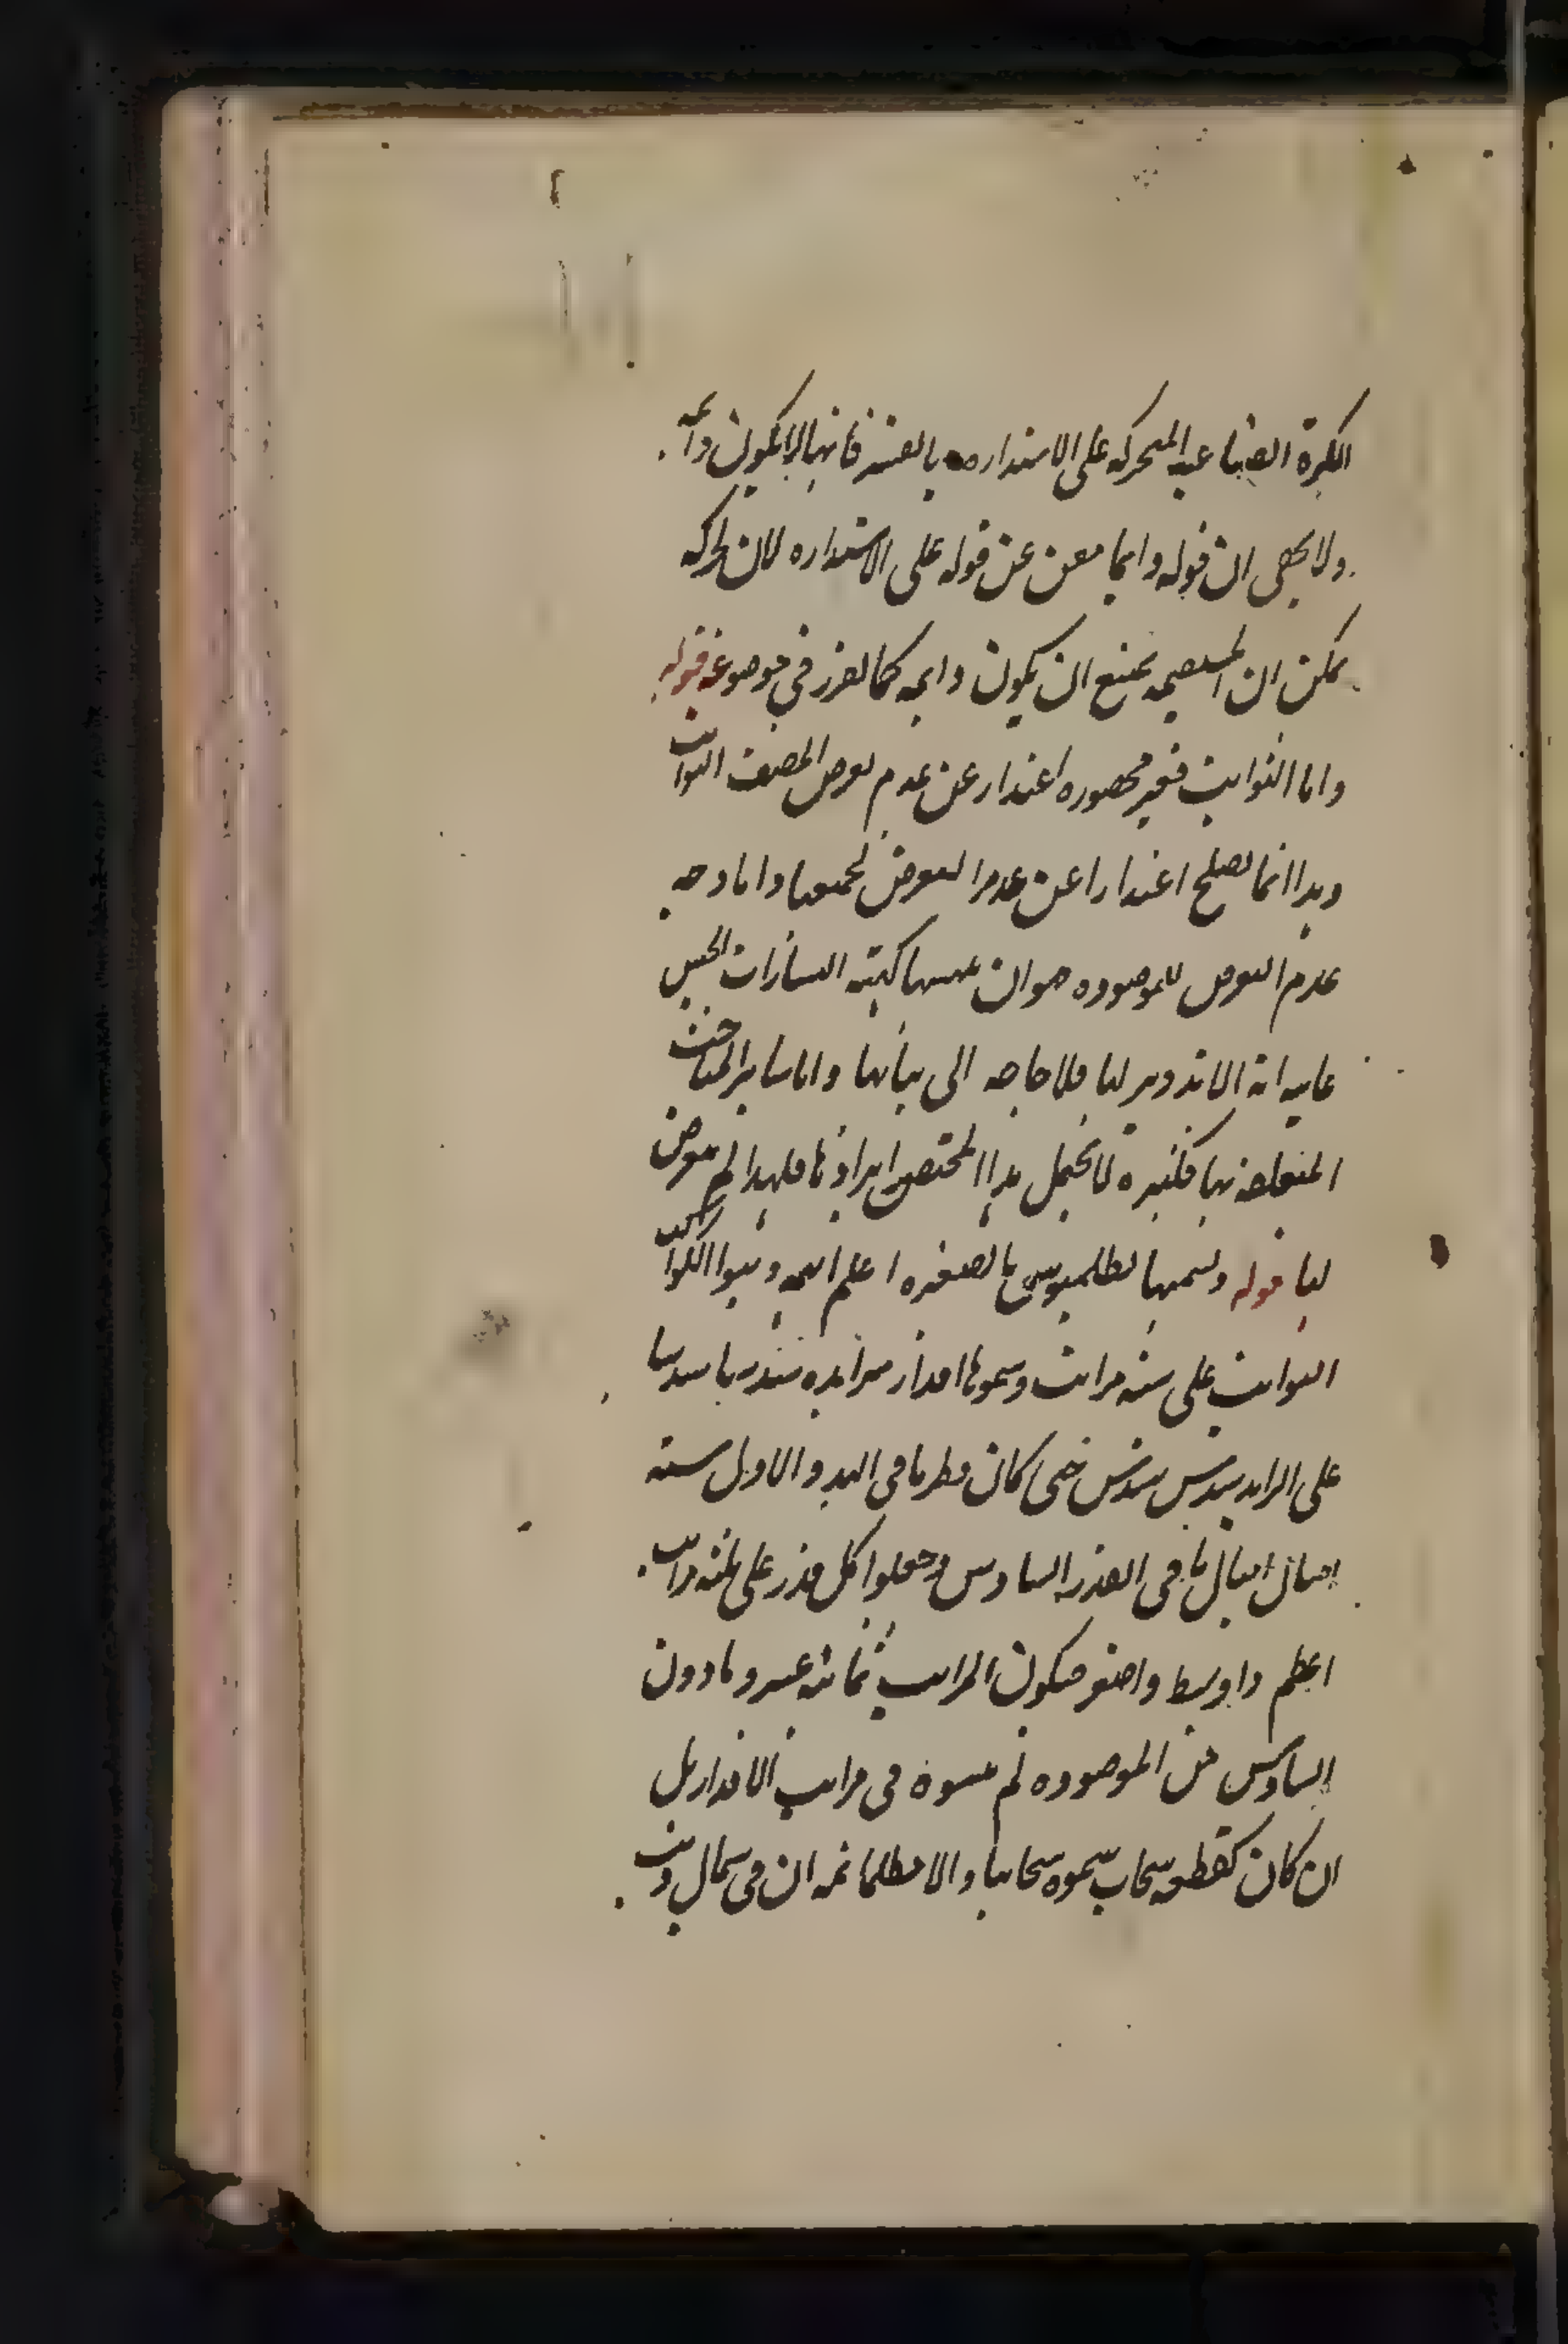 الكرة الصناعيه المتحركه على الاستداره بالقسر فانها لا يكون دائمه
ولا يخفى ان قوله دايما مغن عن قوله على الاستداره لان الحركه
يمكن ان المستقيمه يمتنع ان يكون دايمه كما تقرر فى موضوعه قوله
واما الثوابت فغير محصوره اعتذار عن عدم تعرض المصنف الثوابت
وهذا انما يصلح اعتذارا عن عدم التعرض لجميعها واما وجه
عدم التعرض للمرصوده هو ان السيارات
عليه انه لا تدوير لها فلا حاجه الى بيانها واما سائر المباحث
المتعلقه بها فكثيره لا يحتمل هذا المختصر ايرادها فلهذا لم يتعرض
لها قوله ويسميها بطلميوس بالصغيره اعلم انهم رتبوا الكواكب
الثوابت على سته مراتب وسموها اقدار متزايده سدسا سدسا
على الزايد بسدس سدس حتى كان قطر ما فى القدر الاول سته
امثال امثال ما فى القدر السادس وجعلوا كل قدر على ثلثه مراتب
اعظم واوسط واصغر فيكون المراتب ثمانيه عشر وما دون
السادس من المرصوده لم يثبتوه فى مراتب الاقدار بل
ان كان كقطعه سحاب سموه سحابيا والا مظلما ثم ان فى شمال